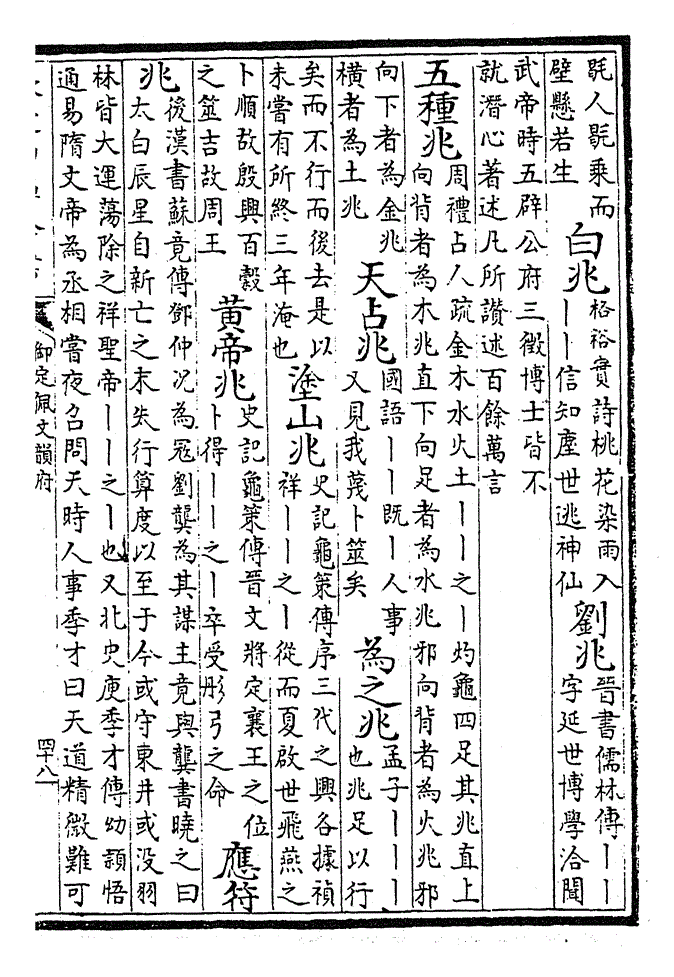 毼人毼乘而
壁懸若生
白兆
格裕賓詩桃花染雨入
丨丨信知塵世逃神仙
劉兆
晉書儒林傳丨丨
字延世博學洽聞
武帝時五辟公府三徵博士皆不
就潛心著述凡所讚述百餘萬言
五種兆
周禮占人疏金木水火土丨丨之丨灼龜四足其兆直上
向背者為木兆直下向足者為水兆邪向背者為火兆邪
向下者為金兆
橫者為土兆
天占兆
國語丨丨既丨人事
又見我蔑卜筮矣
為之兆
孟子丨丨丨
也兆足以行
矣而不行而後去是以
未嘗有所終三年淹也
塗山兆
史記龜策傳序三代之興各據禎
祥丨丨之丨從而夏啟世飛燕之
卜順故殷興百穀
之筮吉故周王
黃帝兆
史記龜策傳晉文將定襄王之位
卜得丨丨之丨卒受彤弓之命
應符
兆
後漢書蘇竟傳鄧仲況為寇劉龔為其謀主竟與龔書曉之曰
太白辰星自新亡之末失行算度以至于今或守東井或没羽
林皆大運蕩除之祥聖帝丨丨之丨也又北史庾季才傳幼穎悟
通易隋文帝為丞相嘗夜召問天時人事季才曰天道精微難可
御定佩文韻府
四十八